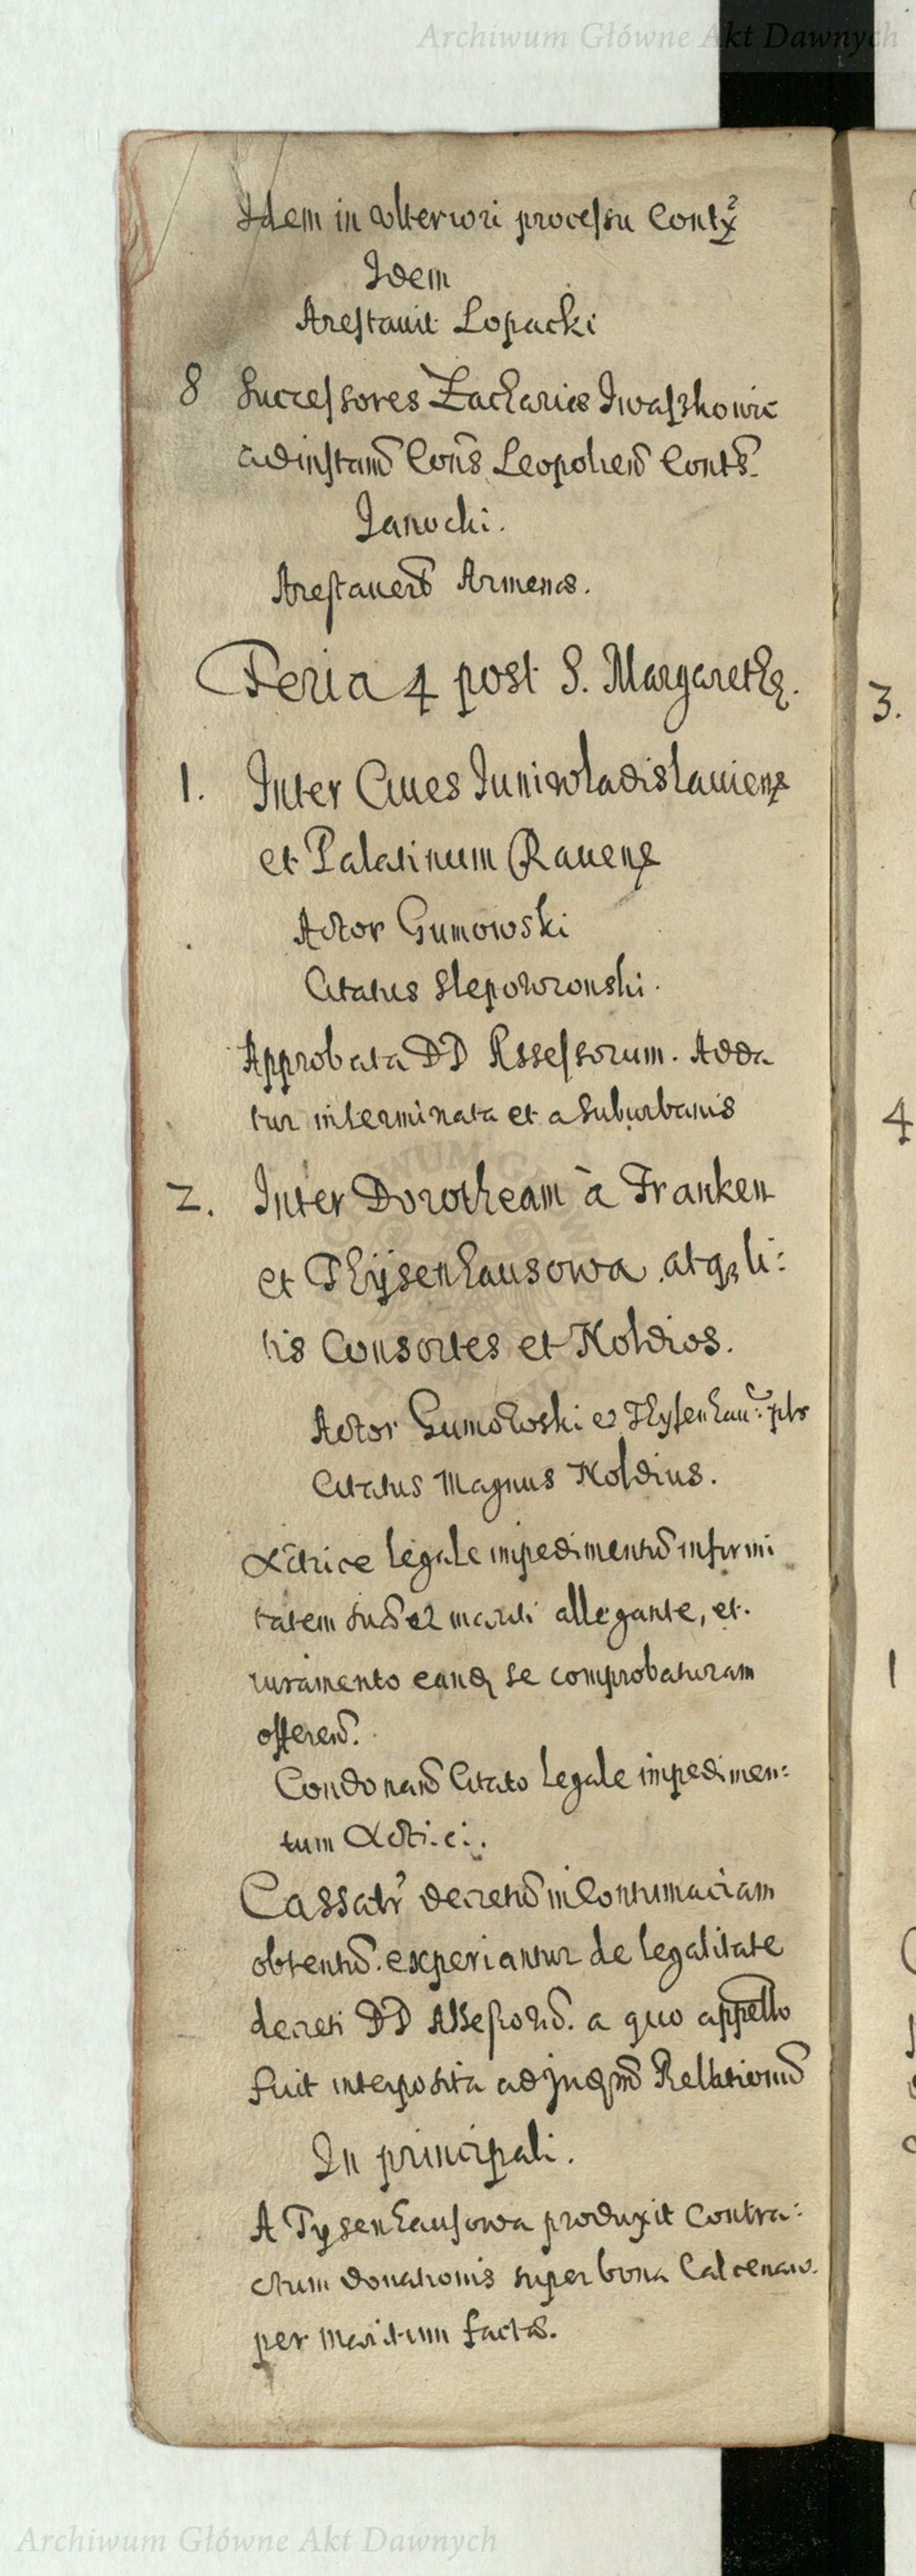 Archiwum Główne Akt Dawnych
Idem in ulteriori processu Contx
Idem
Arestauit Lopacki
8 Successores Zacharias Iwaszkowic
ad instam̃ Con̄s Leopolien̄ Cont̄s.
Janocki.
Arestauer̄t Armenos.
Feria 4 post S. Margarethę.
1. Inter Ciues Juniwladislauien
et Palatinum Rauen
Actor Gumowski
Citatus Slepowronski.
Approbata DD Assessorum. Adda
tur interminata et a suburbanis
2. Inter Dorotheam à Franken
et Thÿsenhausowa atq3 li:
tis Consortes et Noldios.
Actor Gumowski
Citatus Magnus Noldius.
Actrice legale impedimentū infirmi
tatem mariti allegante, et
iuramento eand se comprobaturam
offeren̄.
Condonan̄ Citato legale impedimen:
tum
Cassatr decretū in Contumaciam
obtentū. experiantur de legalitate
decreti DD Assessorū. a quo appello
fuit interposita ad Rellationū
In principali.
A Tysenhausowa produxit Contra:
ctum donationis super bona Calcenaw.
per maritum factas.
3.
4
1
Archiwum Główne Akt Dawnych